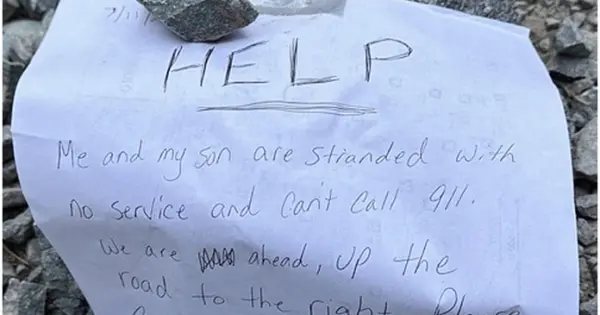 7/11/
HELP
Me and my son are stranded with
no service and can't call 911.
We are ahead, up the
road to the right. Please